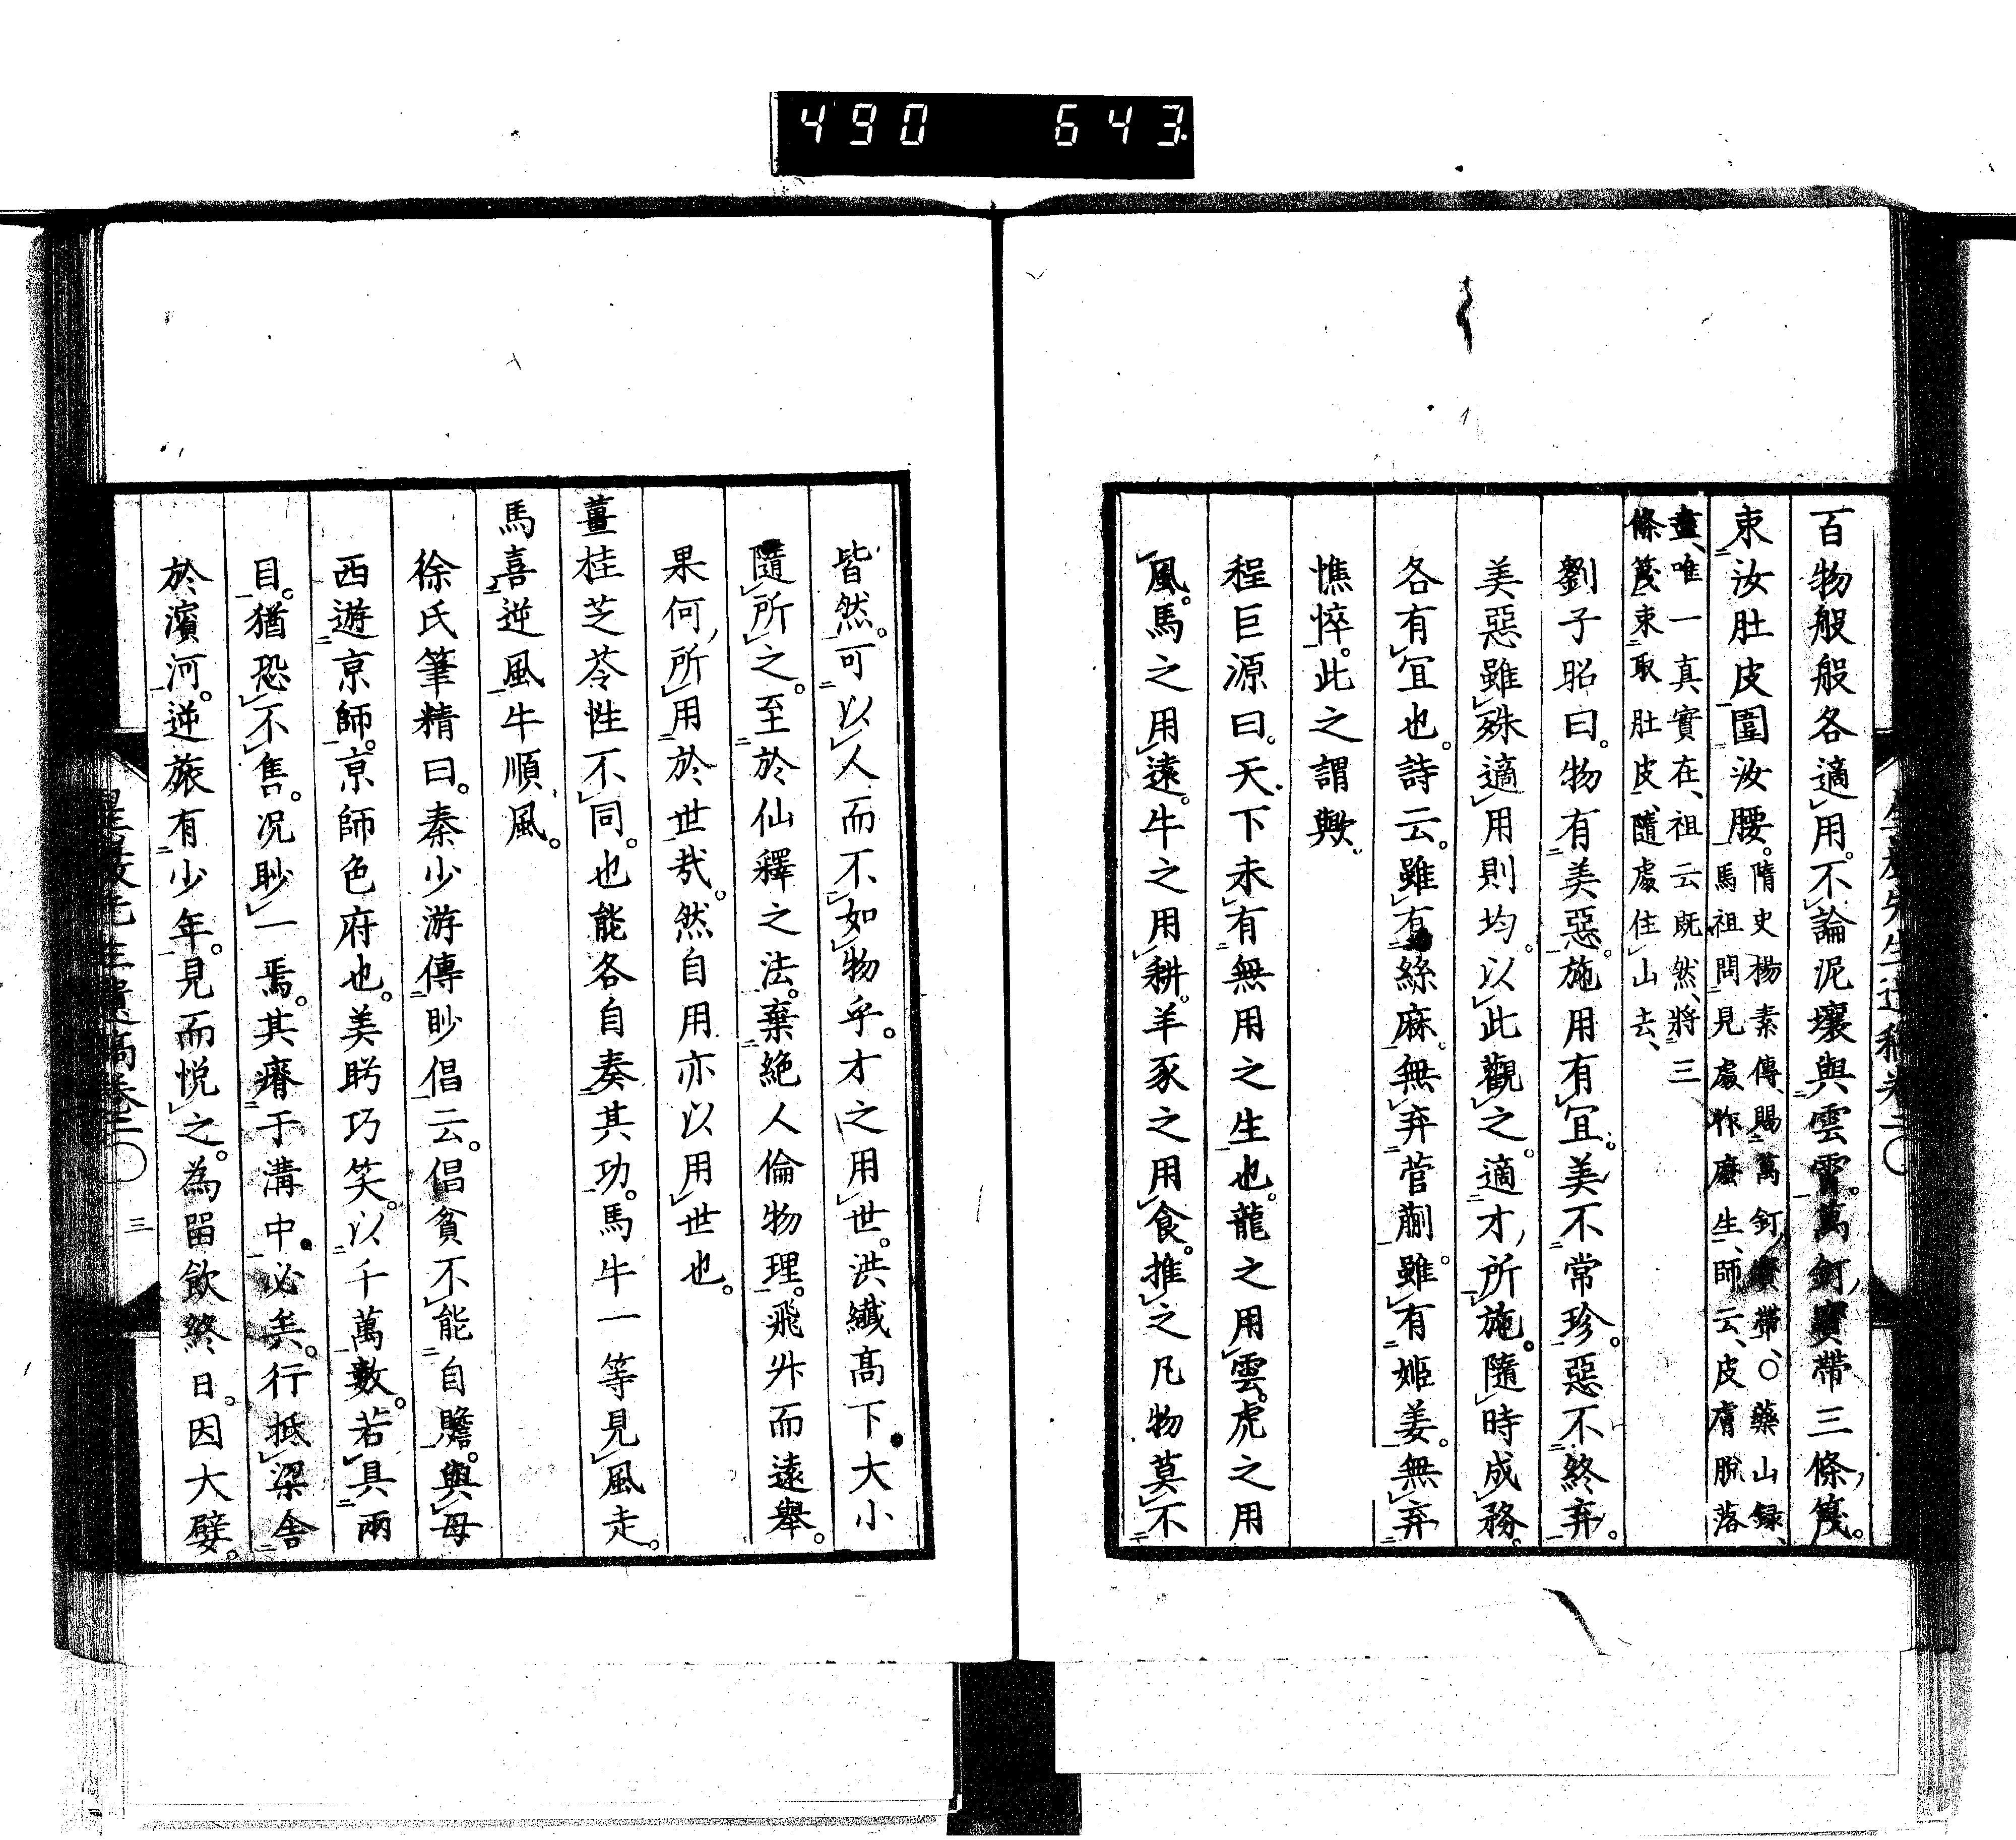 490 643
百物般般各適用。不論泥壤與雲霄。萬釘寶帶三條篾。
束汝肚皮圍汝腰。隋史楊素傳、賜萬釘寶帶、○藥山録、
馬祖問見處作麼生、師云、皮膚脫落
盡、唯一真實在、祖云既然、將三
條篾束取肚皮、隨處住山去、
劉子昭曰。物有美惡。施用有冝。美不常珍。惡不終弃。
美惡雖殊適用則均。以此觀之。適才所施。隨時成務。
各有冝也。詩云。雖有絲麻。無弃菅蒯。雖有姬姜。無弃
憔悴。此之謂歟。
程巨源曰。天下未有無用之生也。龍之用雲。虎之用
風。馬之用遠。牛之用耕。羊豕之用食。推之凡物莫不
皆然。可以人而不如物乎。才之用世。洪纖高下大小
隨所之。至於仙釋之法。棄絶人倫物理。飛升而遠舉。
果何所用於世哉。然自用亦以用世也。
薑桂芝苓性不同。也能各自奏其功。馬牛一等見風走。
馬喜逆風牛順風。
徐氏筆精曰。秦少游傳眇倡云。倡貧不能自贍。與母
西遊京師。京師色府也。美眄巧笑。以千萬數。若具兩
目。猶恐不售。况眇一焉。其瘠于溝中必矣。行抵梁舎
於濱河。逆旅有少年。見而悦之。為畱飲終日。因大嬖。
先生遺稿卷二○ 三